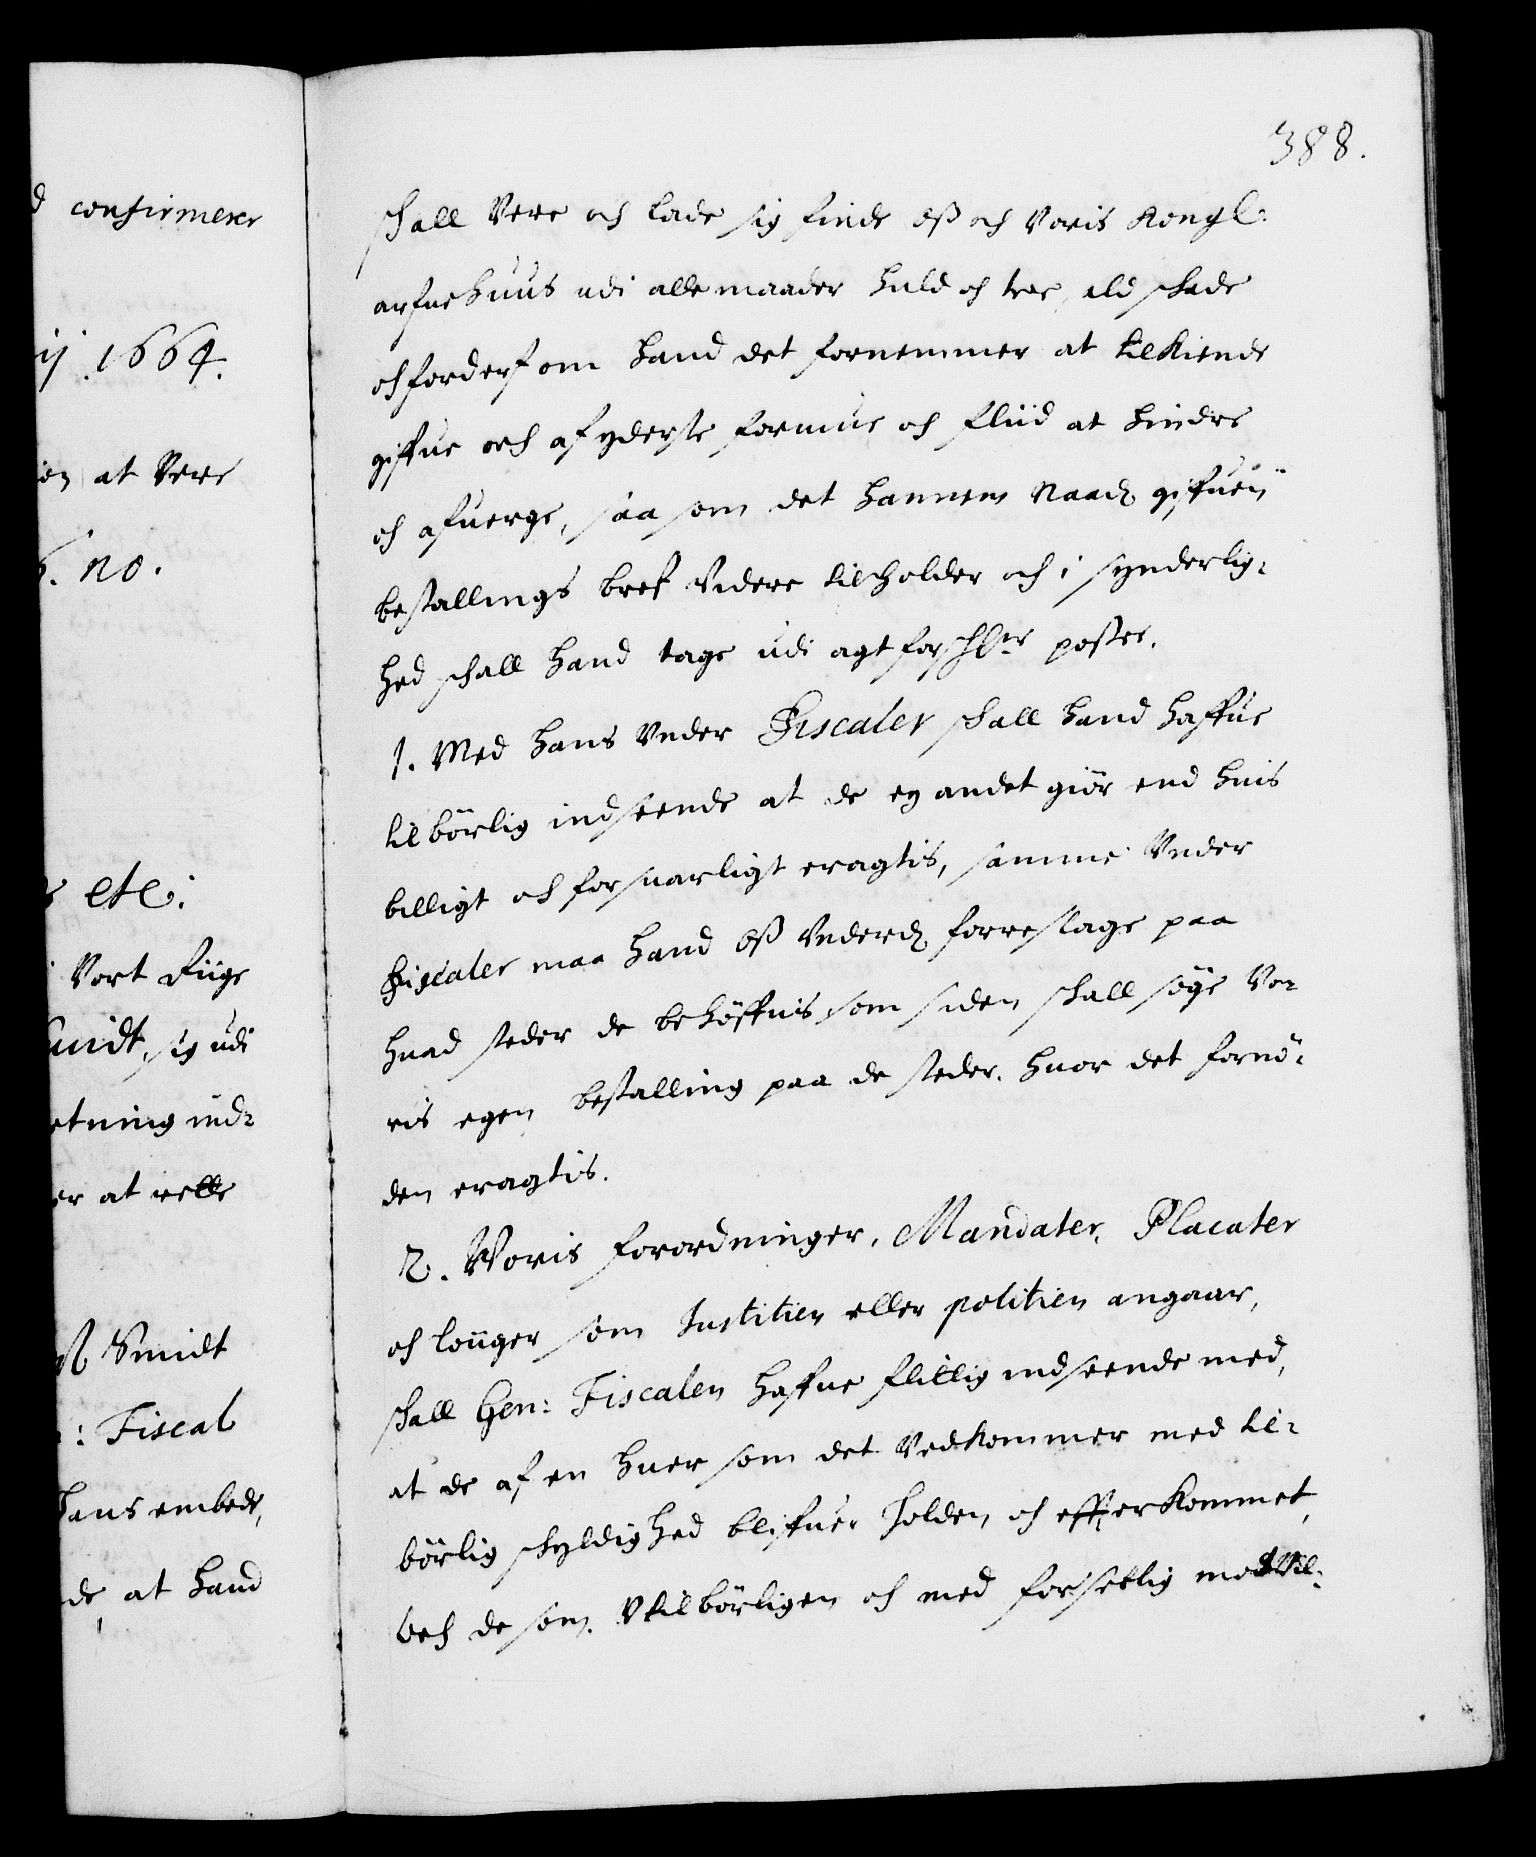 388.
d confirmerer
ij 1664.
ion at Vere
no.
etc:
Vort Riige
Smidt, sig udi
etning ind-
er at rette
Smidt
: Fiscal
hans embede,
de, at hand
schall Vere och lade sig finde oß och Voris Kongl:
arfuehuus udi alle maader huld och troe, ald schade
och forderf om hand det fornemmer at tilkiende
giffue och af yderste formue och fliid at hindre
och afuerge, saa som det hannem Naad. gifuen
bestallings bref Videre tilholder och i synderlig-
hed schall hand tage udi agt poster.
1. Med hans Under Fiscaler schall hand haffue
tilbörlig indseende at de ey andet giör end huis
billigt och forsuarligt eragtis, samme Under
Fiscaler maa hand oß Underd. forreslage paa
huad steder de behöffuis som siden schall söge Vo-
ris egen bestalling paa de steder. huor det fornö-
den eragtis.
2. Voris forordninger, Mandater, Placater
och louger som Justitien eller politien angaar,
schall Gen: Fiscalen haffue flittig indseende med,
at de af en huer som det Vedkommer med til-
börlig schyldighed blifuer holden och effterkommet,
och de som Utilbörligen och med forsettlig modvil-